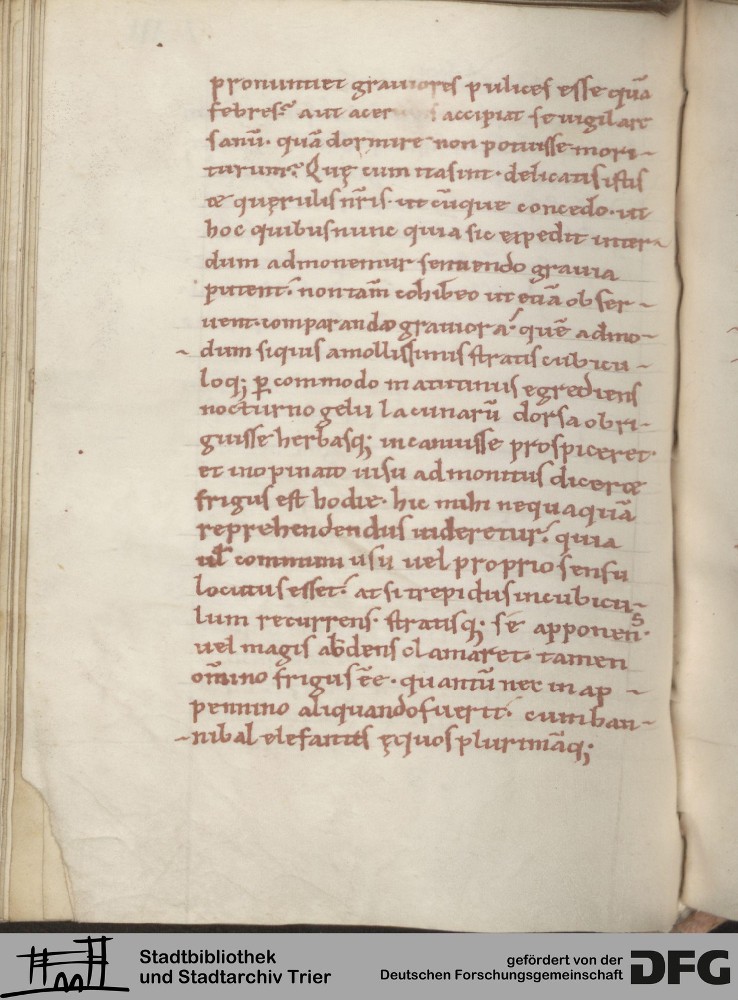 pronuntiet grauiores pulices esse quā
febres? aut acer accipiat se uigilare
sanū· quā dormire non potuisse mori-
turum? Quę cum ita sint· delicatis istis
& quęrulis nr̄is· utcūque concedo· ut
hoc quibus nunc quia sic expedit inter-
dum admonemur sentiendo grauia
putent· non tam̄ cohibeo ut etiā obser-
uent· comparandæ grauiora? quē admo-
dum siquis a mollissimis stratis cubicu-
loq; ꝑcommodo matutinus egrediens
nocturno gelu lacunarū dorsa obri-
guisse herbasq; incanuisse prospiceret·
et inopinato uisu admonitus diceræ
frigus est hodie· hic mihi nequaquā
reprehendendus uideretur· quia
ul̄ communi usu uel proprio sensu
locutus esset· at si trepidus in cubicu-
lum recurrens· stratisq; se apponens·
uel magis abdens clamaret· tamen
om̄ino frigus ēe· quantū nec in ap-
pennino aliquando fuerit· cum han-
nibal elefantes ęquos plurimāq;
Stadtbibliothek
und Stadtarchiv Trier
gefördert von der
Deutschen Forschungsgemeinschaft
DFG